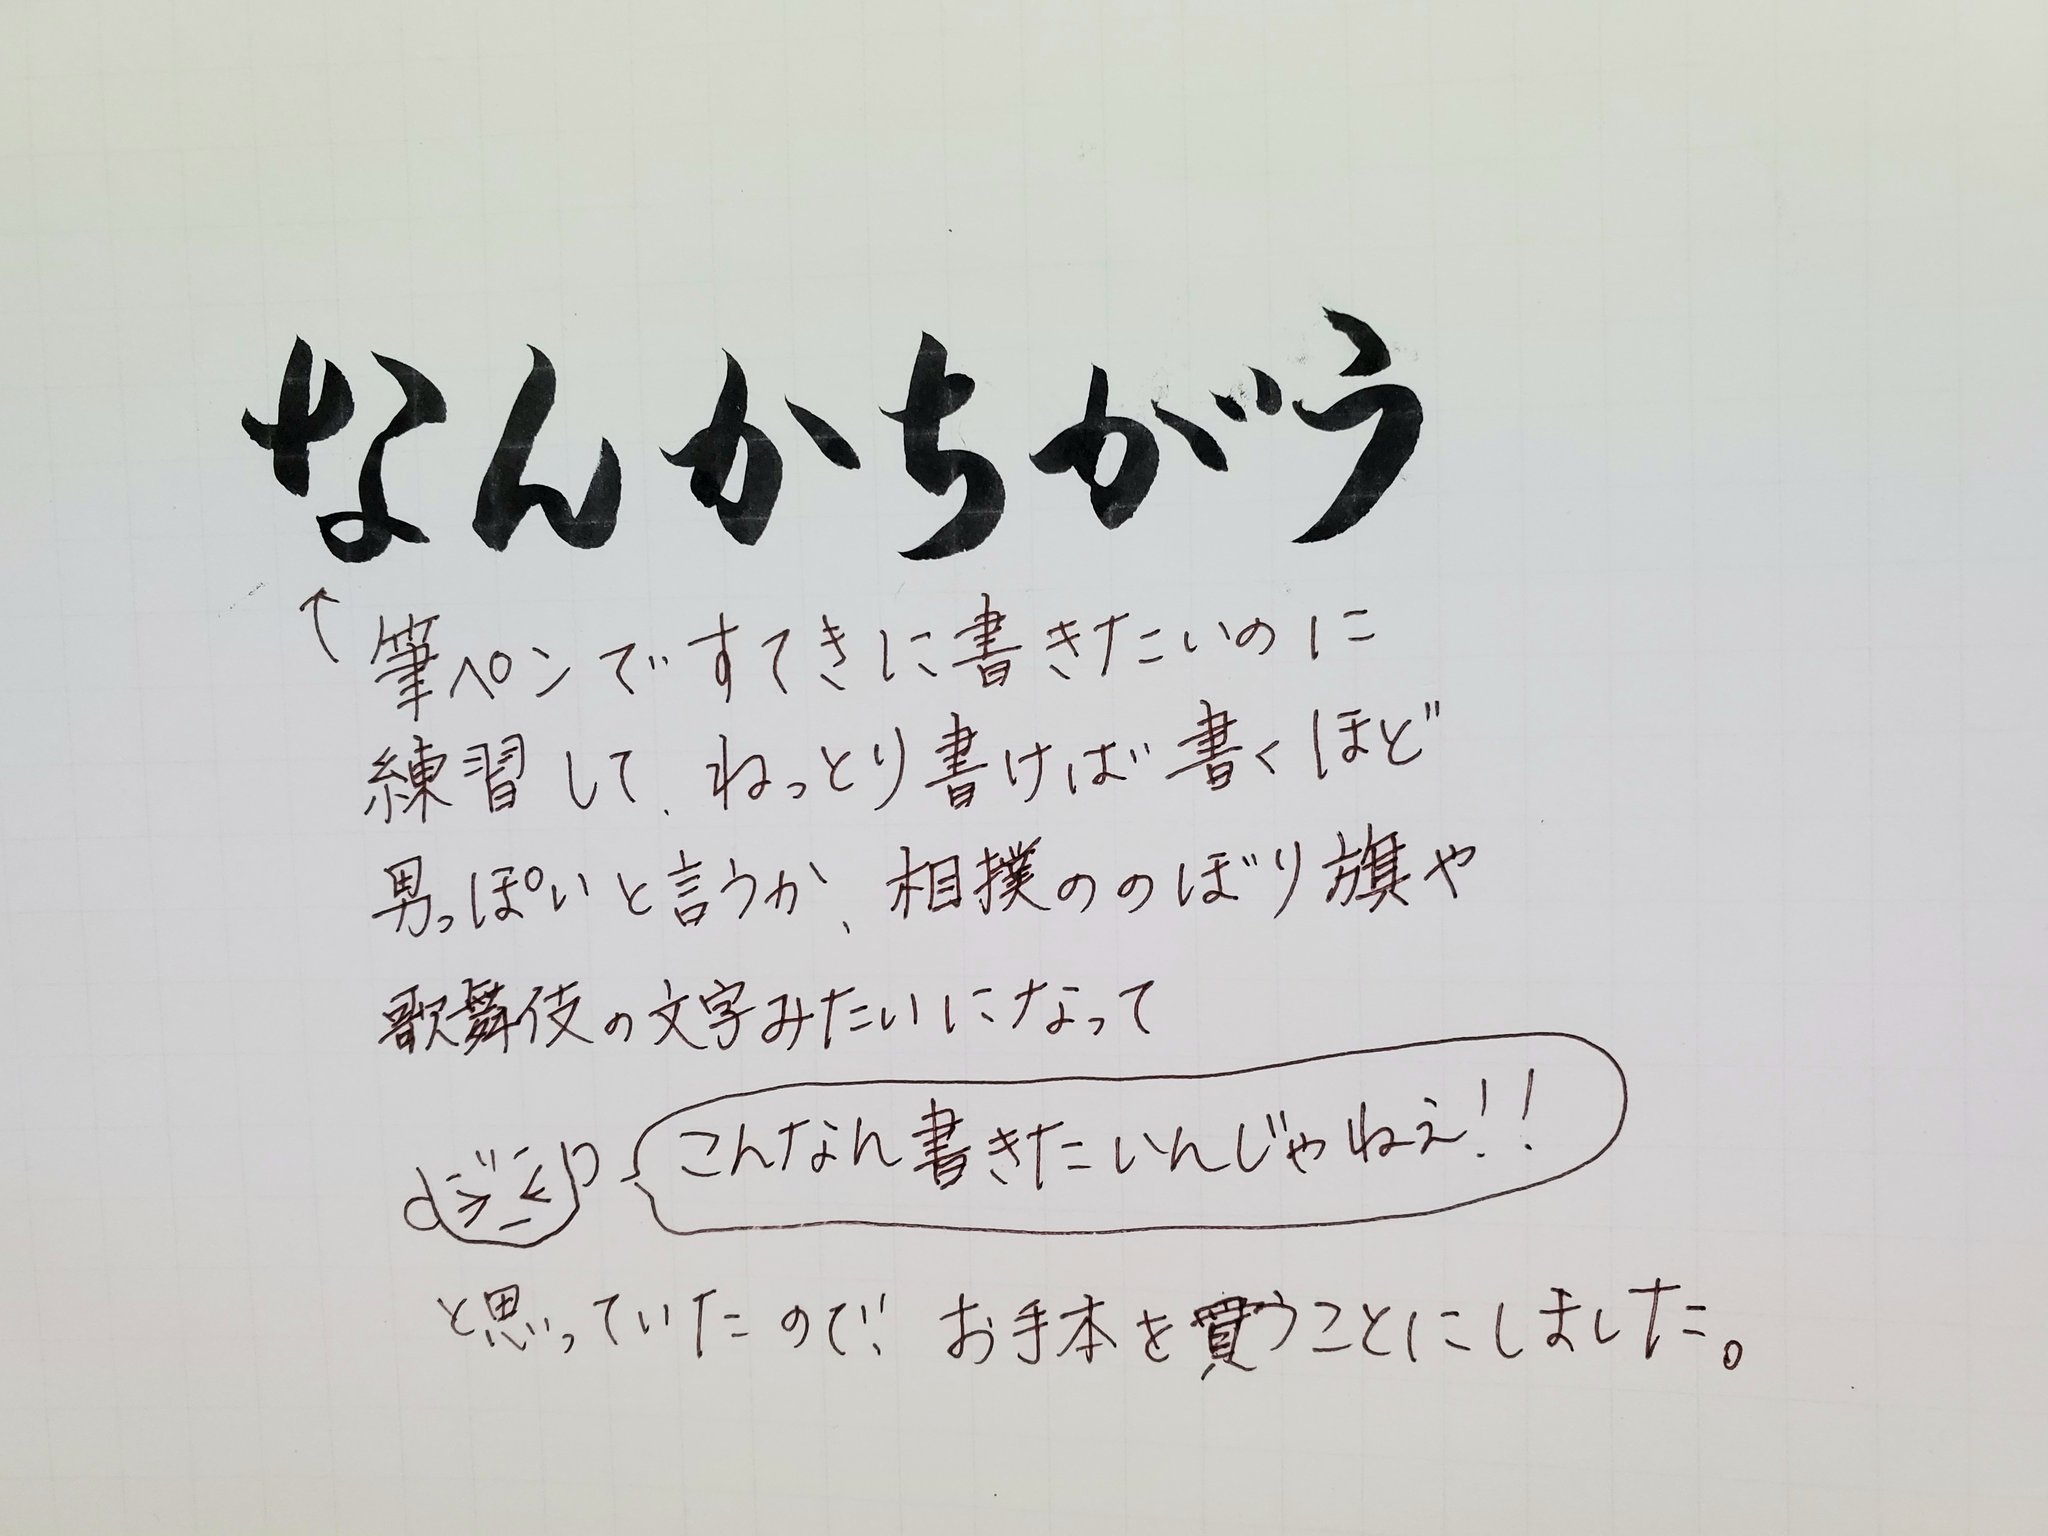 なんかちがう
↑筆ペンですてきに書きたいのに
練習して、ねっとり書けば書くほど
男っぽいと言うか、相撲ののぼり旗や
歌舞伎の文字みたいになって
こんなん書きたいんじゃねえ!!
と思っていたので、お手本を買うことにしました。